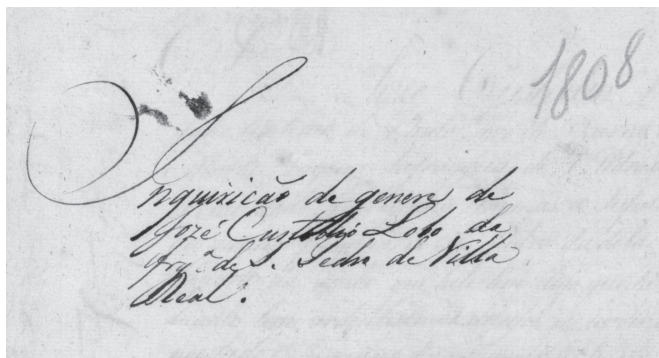 1808
Inquirição de genere de
José Custodio Lobo da
frg.ª de S. Pedro de Villa
Real.